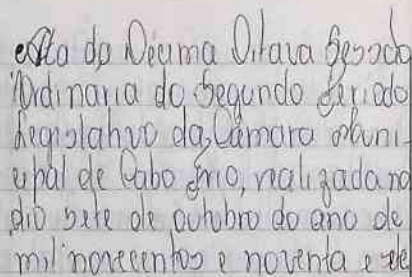 Ata da Décima Oitava Sessão
Ordinaria do Segundo Periodo
Legislativo da Câmara Muni-
cipal de Cabo Frio, realizada no
dia sete de outubro do ano de
mil novecentos e noventa e sete